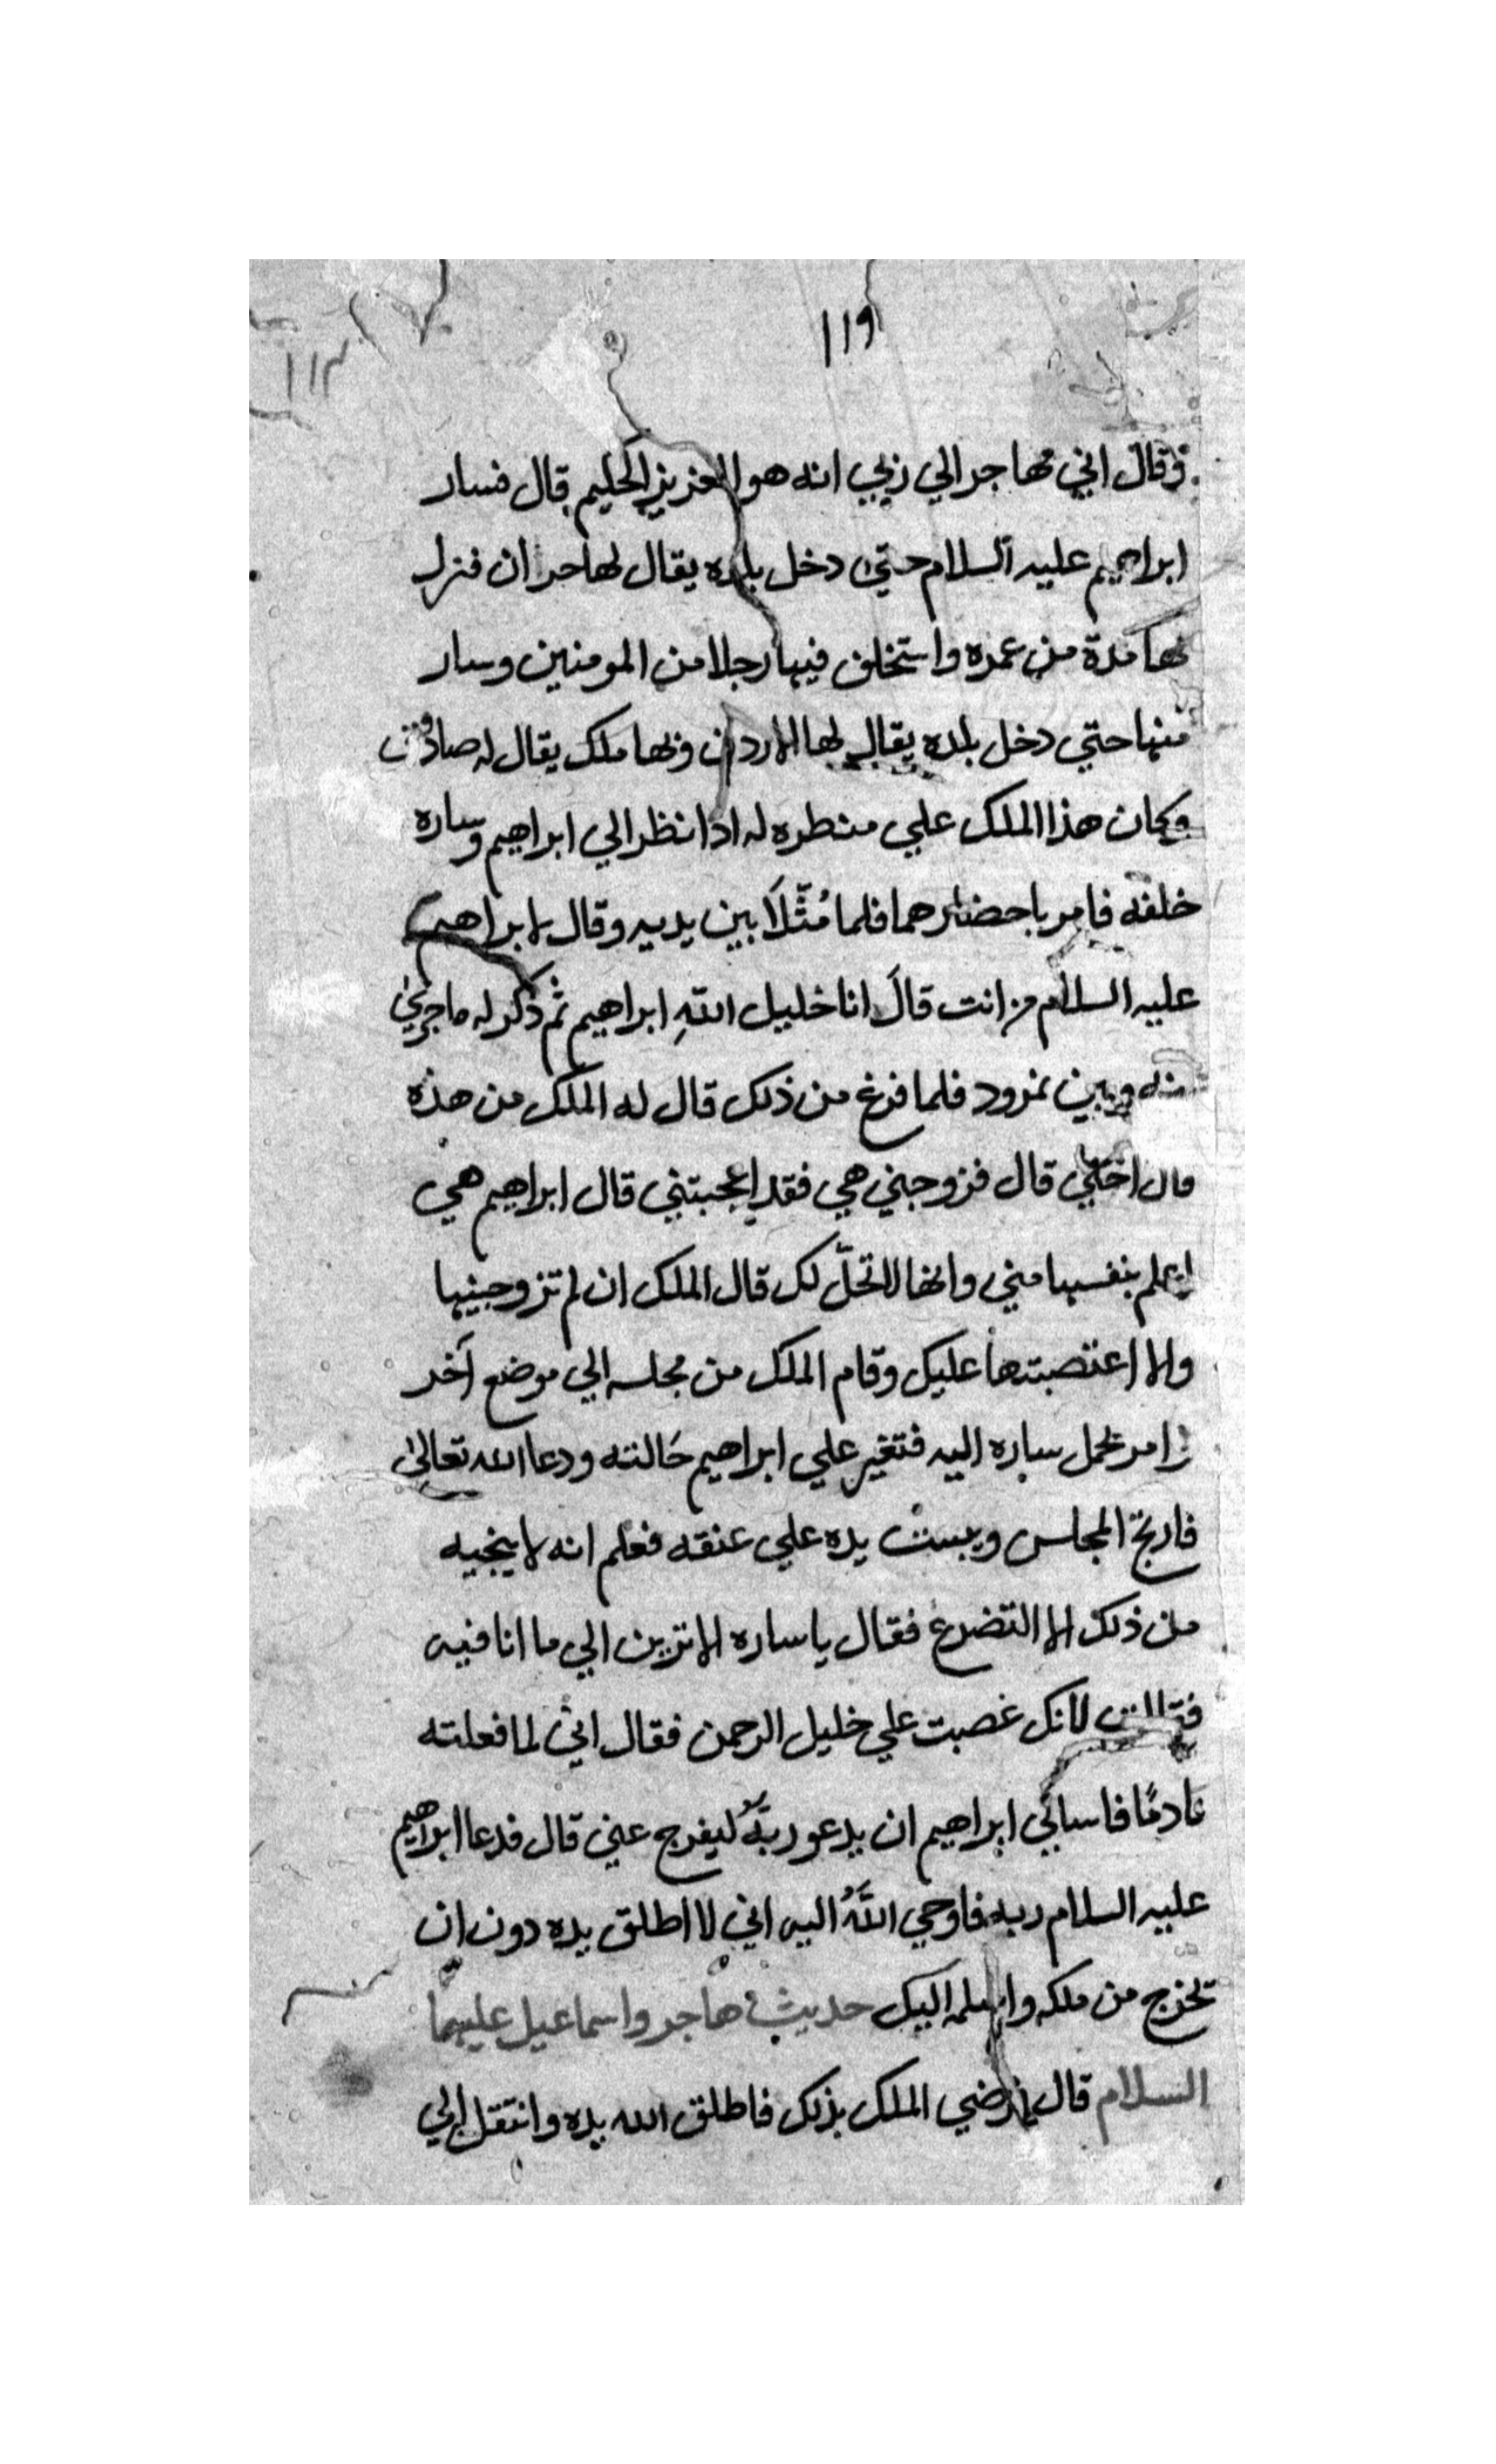 ١١٩
١١٣
وقال اني مهاجر الي ربي انه هو العزيز الحكيم قال فسار
ابراهيم عليه السلام حتي دخل بلده يقال لها حران فنزل
بها مدة من عمره واستخلف فيها رجلا من المومنين وسار
منها حتي دخل بلده يقال لها الاردن وبها ملك يقال له صادوف
وكان هذا الملك علي منطره له اذا نظر الي ابراهيم وساره
خلفه فامر باحضارهما فلما مُثّلَا بين يديه وقال يا ابراهيم
عليه السلام من انت قالَ انا خليل اللهِ ابراهيم ثم ذكر له ما جري
بينه وبين نمرود فلما فرغ من ذلك قال له الملك من هذه
قال اختي قال فزوجني هي فقد اعجبتني قال ابراهيم هي
اعلم بنفسها مني وانها لا تحلّ لك قال الملك ان لم تزوجنيها
والا اغتصبتها عليك وقام الملك من مجلسه الي موضع آخر
وامر بحمل ساره اليه فتغير علي ابراهيم حَالته ودعا الله تعالى
فارتج المجلس ويبست يده علي عنقه فعلم انه لا ينجيه
من ذلك الا التضرع فقال يا ساره الا ترين الي ما انا فيه
فقالت لانك غصبت علي خليل الرحمن فقال اني لما فعلته
نادمًا فاسالي ابراهيم ان يدعو ربَّه ليفرج عني قال فدعا ابراهيم
عليه السلام ربه فاوحي اللَّهُ اليه اني لا اطلق يده دون ان
تخرج من ملكه واسلمه اليك حديث هاجر واسماعيل عليهما
السلام قال فرضي الملك بذلك فاطلق الله يده وانتقل الي